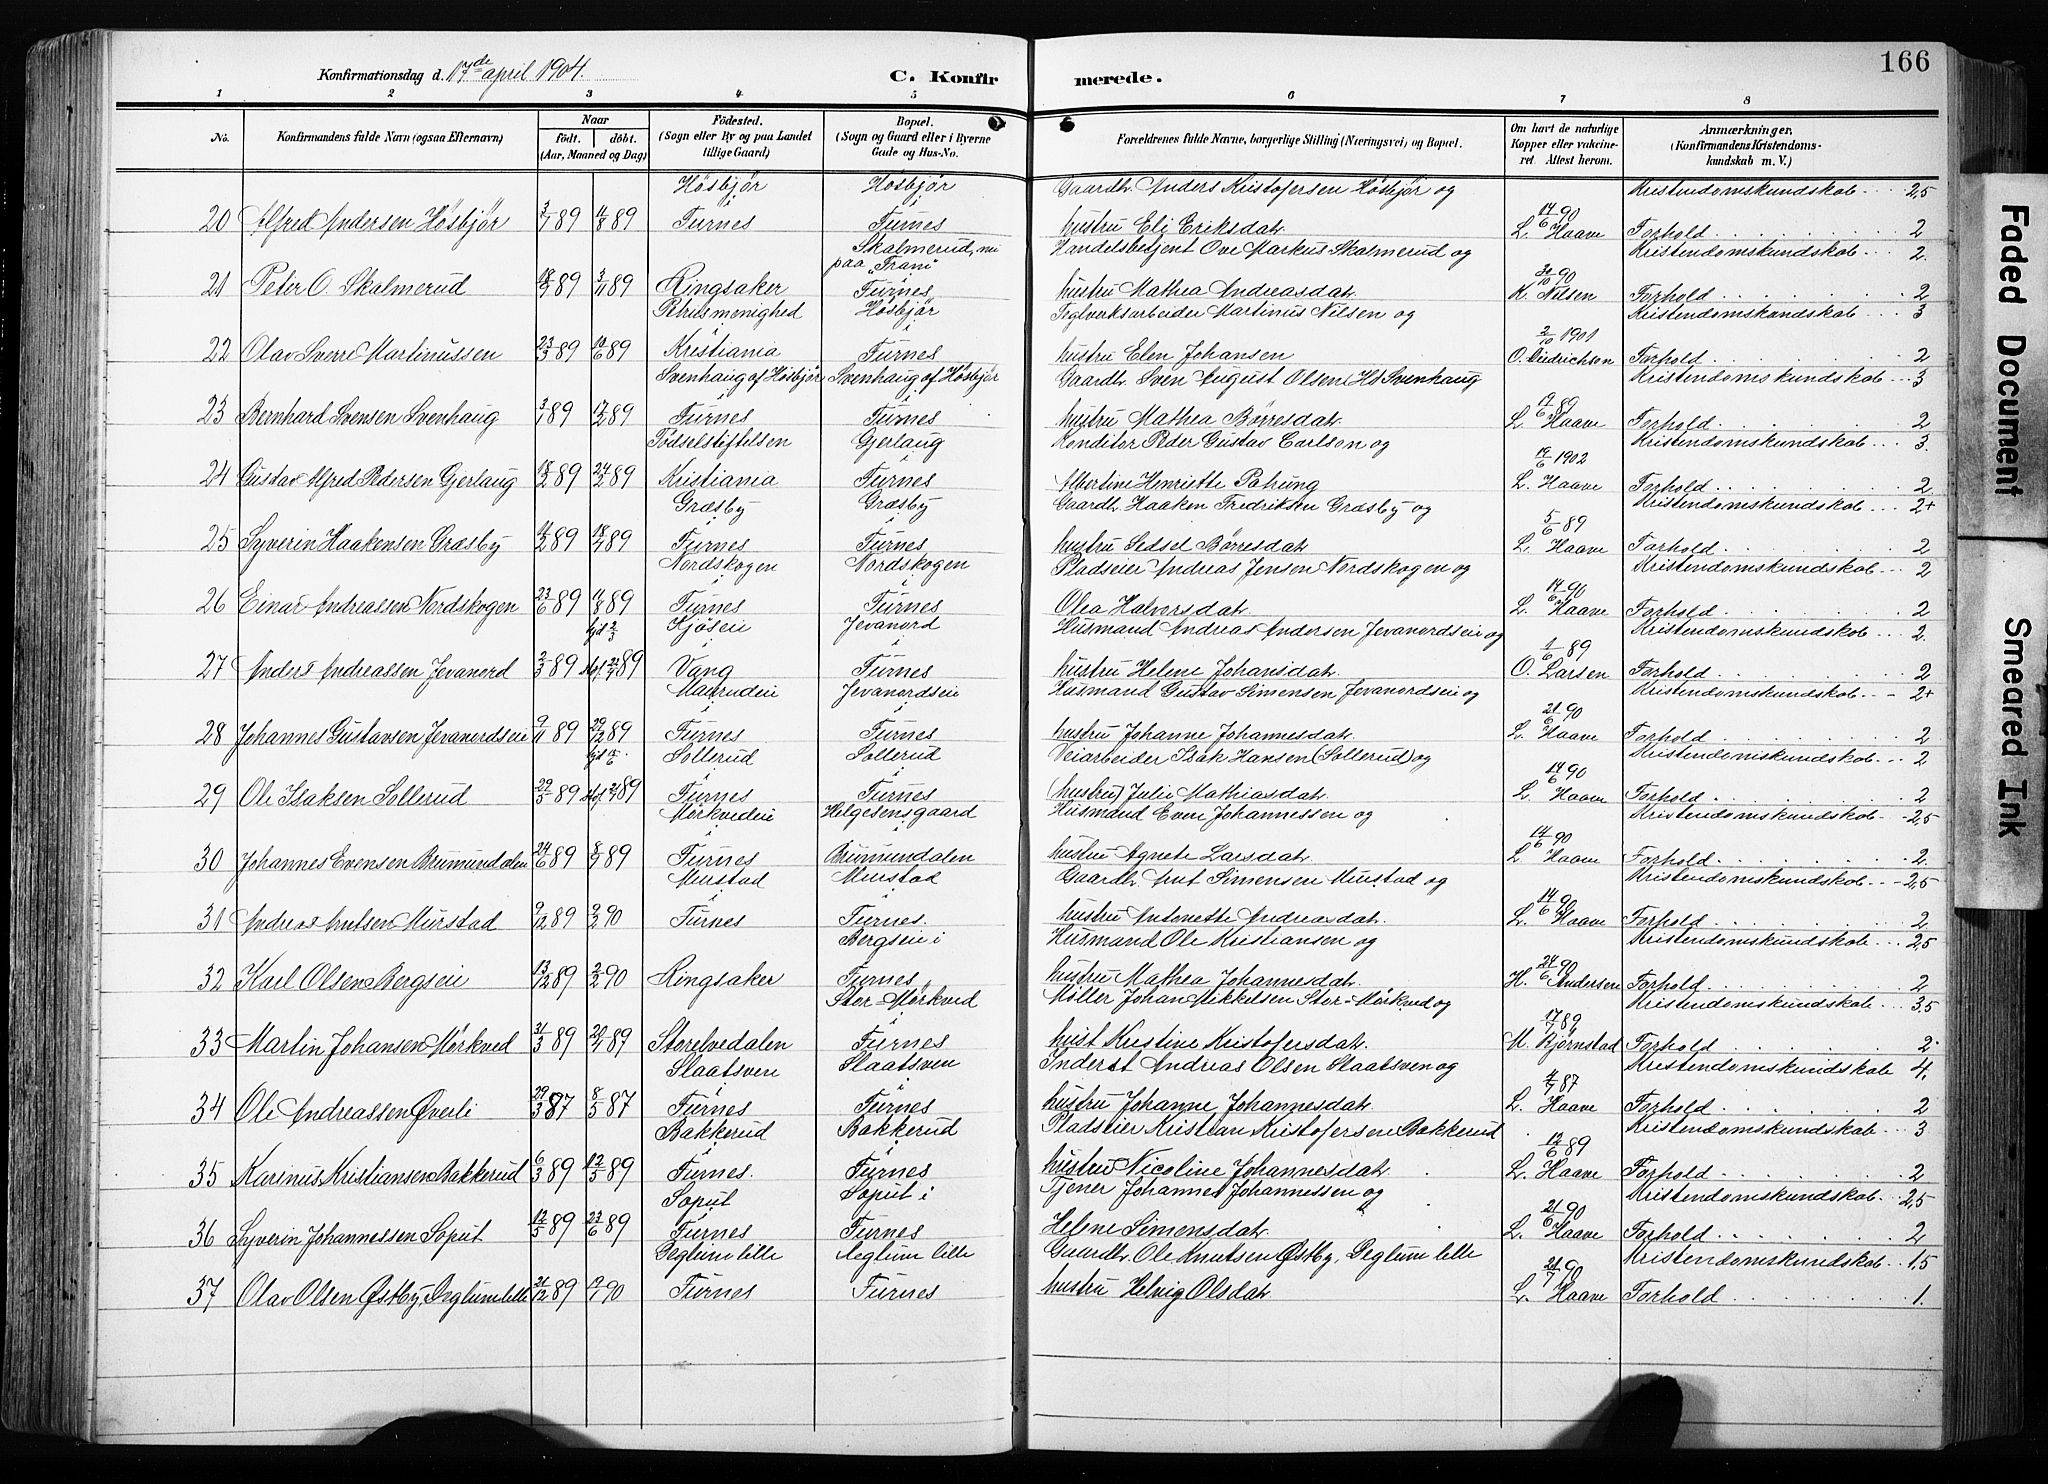 166
Konfirmationsdag d. 17de april 1904.
C. Konfirmerede.
1 2 3 4 5 6 7 8
No. Konfirmandens fulde Navn (ogsaa Efternavn) Naar født. døbt. (Aar, Maaned og Dag) Fødested. (Sogn eller By og paa Landet tillige Gaard) Bopæl. (Sogn og Gaard eller i Byerne Gade og Hus-No. Forældrenes fulde Navne, borgerlige Stilling (Næringsvei) og Bopæl. Om havt de naturlige Kopper eller vaccineret. Attest herom. Anmærkninger. (Konfirmandens Kristendomskundskab m. V.)
Høsbjør Høsbjør Gaardbr. Anders Kristofersen Høsbjør og Kristendomskundskab 2,5
20 Alfred Andersen Høsbjør 3/7 89 11/8 89 i Furnes i Furnes hustru Eli Eriksdatr. 14/6 90 L. Haave Forhold 2
Skalmerud, nu paa "Fram" Handelsbetjent Ove Markus Skalmerud og Kristendomskundskab 2.
21 Peter O. Skalmerud 18/9 89 3/11 89 Ringsaker i Furnes hustru Mathea Andreasdatr. 30/10 90 K. Nilsen Forhold 2
Petrusmenighed Høsbjør Teglverksarbeider Martinus Nilsen og Kristendomskundskab 3
22 Olav Sverre Martinussen 23/3 89 10/6 89 Kristiania i Furnes hustru Elen Johansen 2/10 1901 O. Diedrichson Forhold 2
Svenhaug af Høsbjør Svenhaug af Høsbjør Gaardbr. Sven August Olsen Hd Svenhaug Kristendomskundskab 3
23 Bernhard Svensen Svenhaug 3/1 89 17/2 89 i Furnes i Furnes hustru Mathea Børresdatr. 19/6 89 L. Haave Forhold 2
Fødselstiftelsen Gjerlaug Konditor Peder Gustav Carlson og Kristendomskundskab 3.
24 Gustav Alfred Pedersen Gjerlaug 18/2 89 24/2 89 Kristiania i Furnes Albertine Henriette Pahrung 19/6 1902 L. Haave Forhold 2
Græsby Græsby Gaardbr. Haaken Fredriksen Græsby og Kristendomskundskab 2+
25 Syverin Haakensen Græsby 11/2 89 18/4 89 i Furnes i Furnes hustru Sedsel Børresdatr. 5/6 89 L. Haave Forhold 2
Nordskogen Nordskogen Pladseier Andreas Jensen Nordskogen og Kristendomskundskab 2
26 Einar Andreassen Nordskogen 23/6 89 11/8 89 i Furnes i Furnes Olea Halvorsdatr. 14/6 90 L. Haave Forhold 2
hjd 2/3 Kjøseie Jevanord Husmand Andreas Andersen Jevanordseie og Kristendomskundskab 2.
27 Anders Andreassen Jevanord 2/3 89 89 i Vang i Furnes hustru Helene Johansdatr. 1/6 89 O. Larsen Forhold 2
Maarudeie Jevanordseie Husmand Gustav Simensen Jevanordseie og Kristendomskundskab 2+
28 Johannes Gustavsen Jevanordseie 9/11 89 29/12 89 i Furnes i Furnes hustru Johanne Johannesdatr. 21/6 90 L. Haave Forhold 2
Sollerud Sollerud Veiarbeider Isak Hansen (Sollerud) og Kristendomskundskab 2
29 Ole Isaksen Sollerud 29/5 89 89 i Furnes i Furnes (hustru) Julie Mathiasdatr. 14/6 90 L. Haave Forhold 2
Mørkvedeie Helgesensgaard Husmand Even Johannessen og Kristendomskundskab 2,5
30 Johannes Evensen Brumundalen 24/6 89 8/9 89 i Furnes i Brumundalen hustru Agnete Larsdatr. 14/6 90 L. Haave Forhold 2.
Murstad Murstad Gaardbr. Anut Simensen Murstad og Kristendomskundskab 2,5
31 Andreas Anutsen Murstad 9/12 89 9/2 90 i Furnes i Furnes. hustru Antonette Andreasdatr. 14/6 90 L. Haave Forhold 2
Bergseie i Husmand Ole Kristiansen og Kristendomskundskab 2,5
32 Karl Olsen Bergseie 13/12 89 2/2 90 Ringsaker Furnes hustru Mathea Johannesdatr. 24/6 90 H. Andersen Forhold 2
Stor-Mørkved Møller Johan Mikkelsen Stor-Mørkved og Kristendomskundskab 3,5
33 Martin Johansen Mørkved 31/3 89 20/4 89 Storelvedalen i Furnes hust Kristine Kristofersdatr. 17/7 89 M. Bjørnstad Forhold 2
Slaatsven Slaatsven Inderst Andreas Olsen Slaatsven og Kristendomskundskab 4.
34 Ole Andreassen Øverli 29/3 87 8/5 87 i Furnes i Furnes hustru Johanne Johannesdatr. 4/7 87 L. Haave Forhold 2
Bakkerud Bakkerud Pladseier Kristian Kristofersen Bakkerud Kristendomskundskab 3
35 Karinus Kristiansen Bakkerud 6/3 89 12/5 89 i Furnes. i Furnes hustru Nicoline Johannesdatr. 12/6 89 L. Haave Forhold 2
Soput Soput i Tjener Johannes Johannessen og Kristendomskundskab 2,5
36 Syverin Johannessen Soput 12/5 89 23/6 89 i Furnes Furnes Helene Simensdatr. 21/6 90 L. Haave Forhold 2
Deglum lille Deglum lille Gaardbr. Ole Knutsen Østby, Deglum lille Kristendomskundskab 1,5
37 Olav Olsen Østby, Deglum lille 21/12 89 19/1 90 i Furnes i Furnes hustru Helvig Olsdatr. 21/7 90 L. Haave Forhold 1.
Faded Document
Smeared Ink